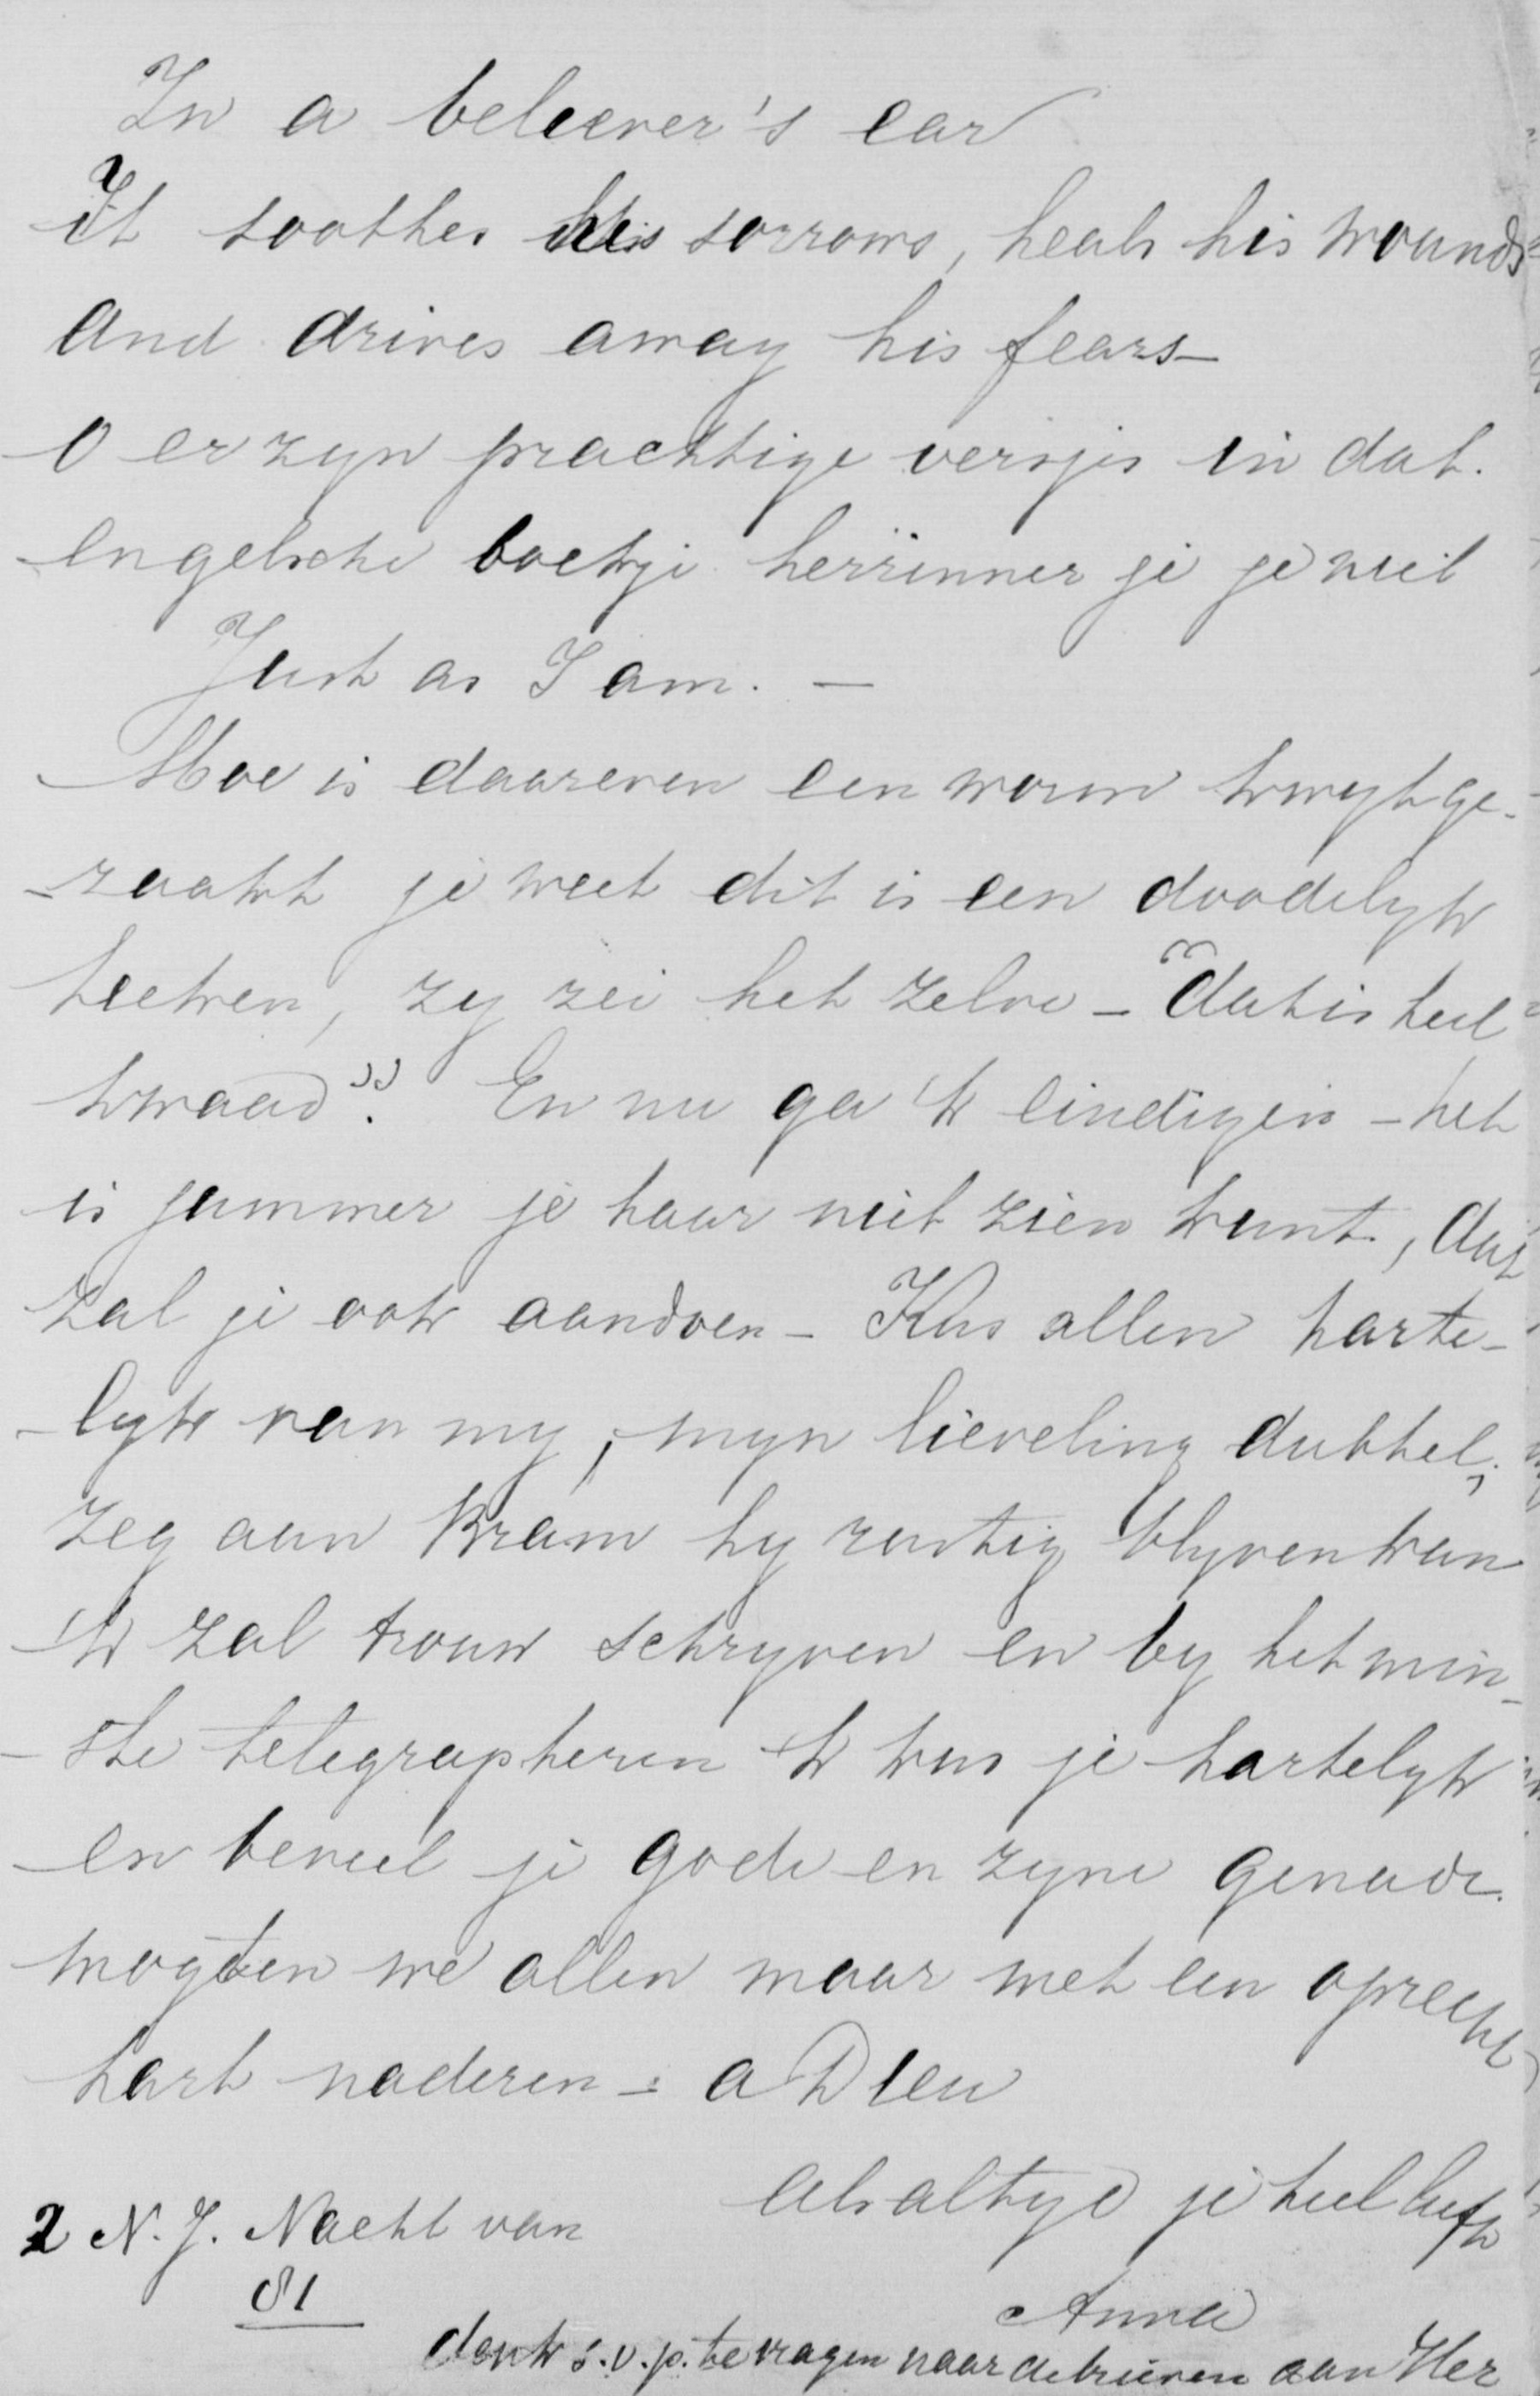 In a beleever's ear
It soothes his sorrows, heals his wounds
And drives away his fears—
O er zyn prachtige versjes in dat.
engelsche boekje herrinner je je niet
Just as I am. —
Moe is daareven een worm kwyt ge-
-raakt je weet dit is een doodelyk
teeken, zy zei het zelve — "dat is heel
kwaad". En nu ga 'k eindigen — het
is jammer je haar niet zien kunt, dat
zal je ook aandoen — Kus allen harte-
-lyk van my, myn lieveling dubbel,
zeg aan Bram hy rustig blyven kan
'k zal trouw schryven en by het min-
-ste telegrapheren 'k kus je hartelyk
en beveel je Gode en zyne genade.
mogten we allen maar met een oprecht
hart naderen — a Dieu
Als altyd je heel liefh
2 N. J. Nacht van
81
Anna
denk s.v.p. te vragen naar de brieven aan Her